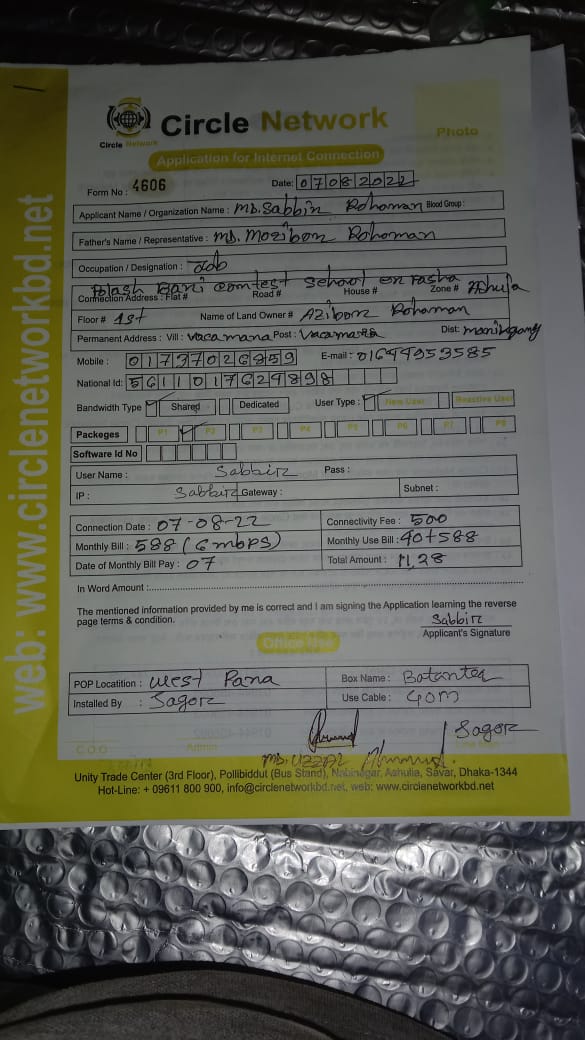 web: www.circlenetworkbd.net
Circle Network
Circle Network
Photo
Application for Internet Connection
Form No : 4606
Date: 07082022
Applicant Name / Organization Name : MD. Sabbir Rohoman Blood Group :
Father's Name / Representative : MD. Mozibor Rohoman
Occupation / Designation : Job
Polash Bari School en Pasha
Connection Address : Flat # Road # House # Zone #
Floor # 1st Name of Land Owner # Azibor Rohoman
Permanent Address : Vill : Vacamana Post : Dist: manikgang
Mobile : 01737026959 E-mail : 01644953585
National Id: 5611017629898
Bandwidth Type Shared Dedicated User Type : New User Reactive User
Packeges P1 P2 P3 P4 P5 P6 P7 P8
Software Id No
User Name : Sabbir Pass :
IP : Sabbir Gateway : Subnet :
Connection Date : 07-08-22 Connectivity Fee : 500
Monthly Bill : 588 (6mbps) Monthly Use Bill : 40+588
Date of Monthly Bill Pay : 07 Total Amount : 11,28
In Word Amount :
The mentioned information provided by me is correct and I am signing the Application learning the reverse
page terms & condition.
Sabbir
Applicant's Signature
Office Use
POP Locatition : West Para Box Name :
Installed By : Sagor Use Cable : 40m
Sagor
C.O.O Admin
MD. UZZAL
Unity Trade Center (3rd Floor), Pollibiddut (Bus Stand), Nabinagar, Ashulia, Savar, Dhaka-1344
Hot-Line: + 09611 800 900, info@circlenetworkbd.net, web: www.circlenetworkbd.net